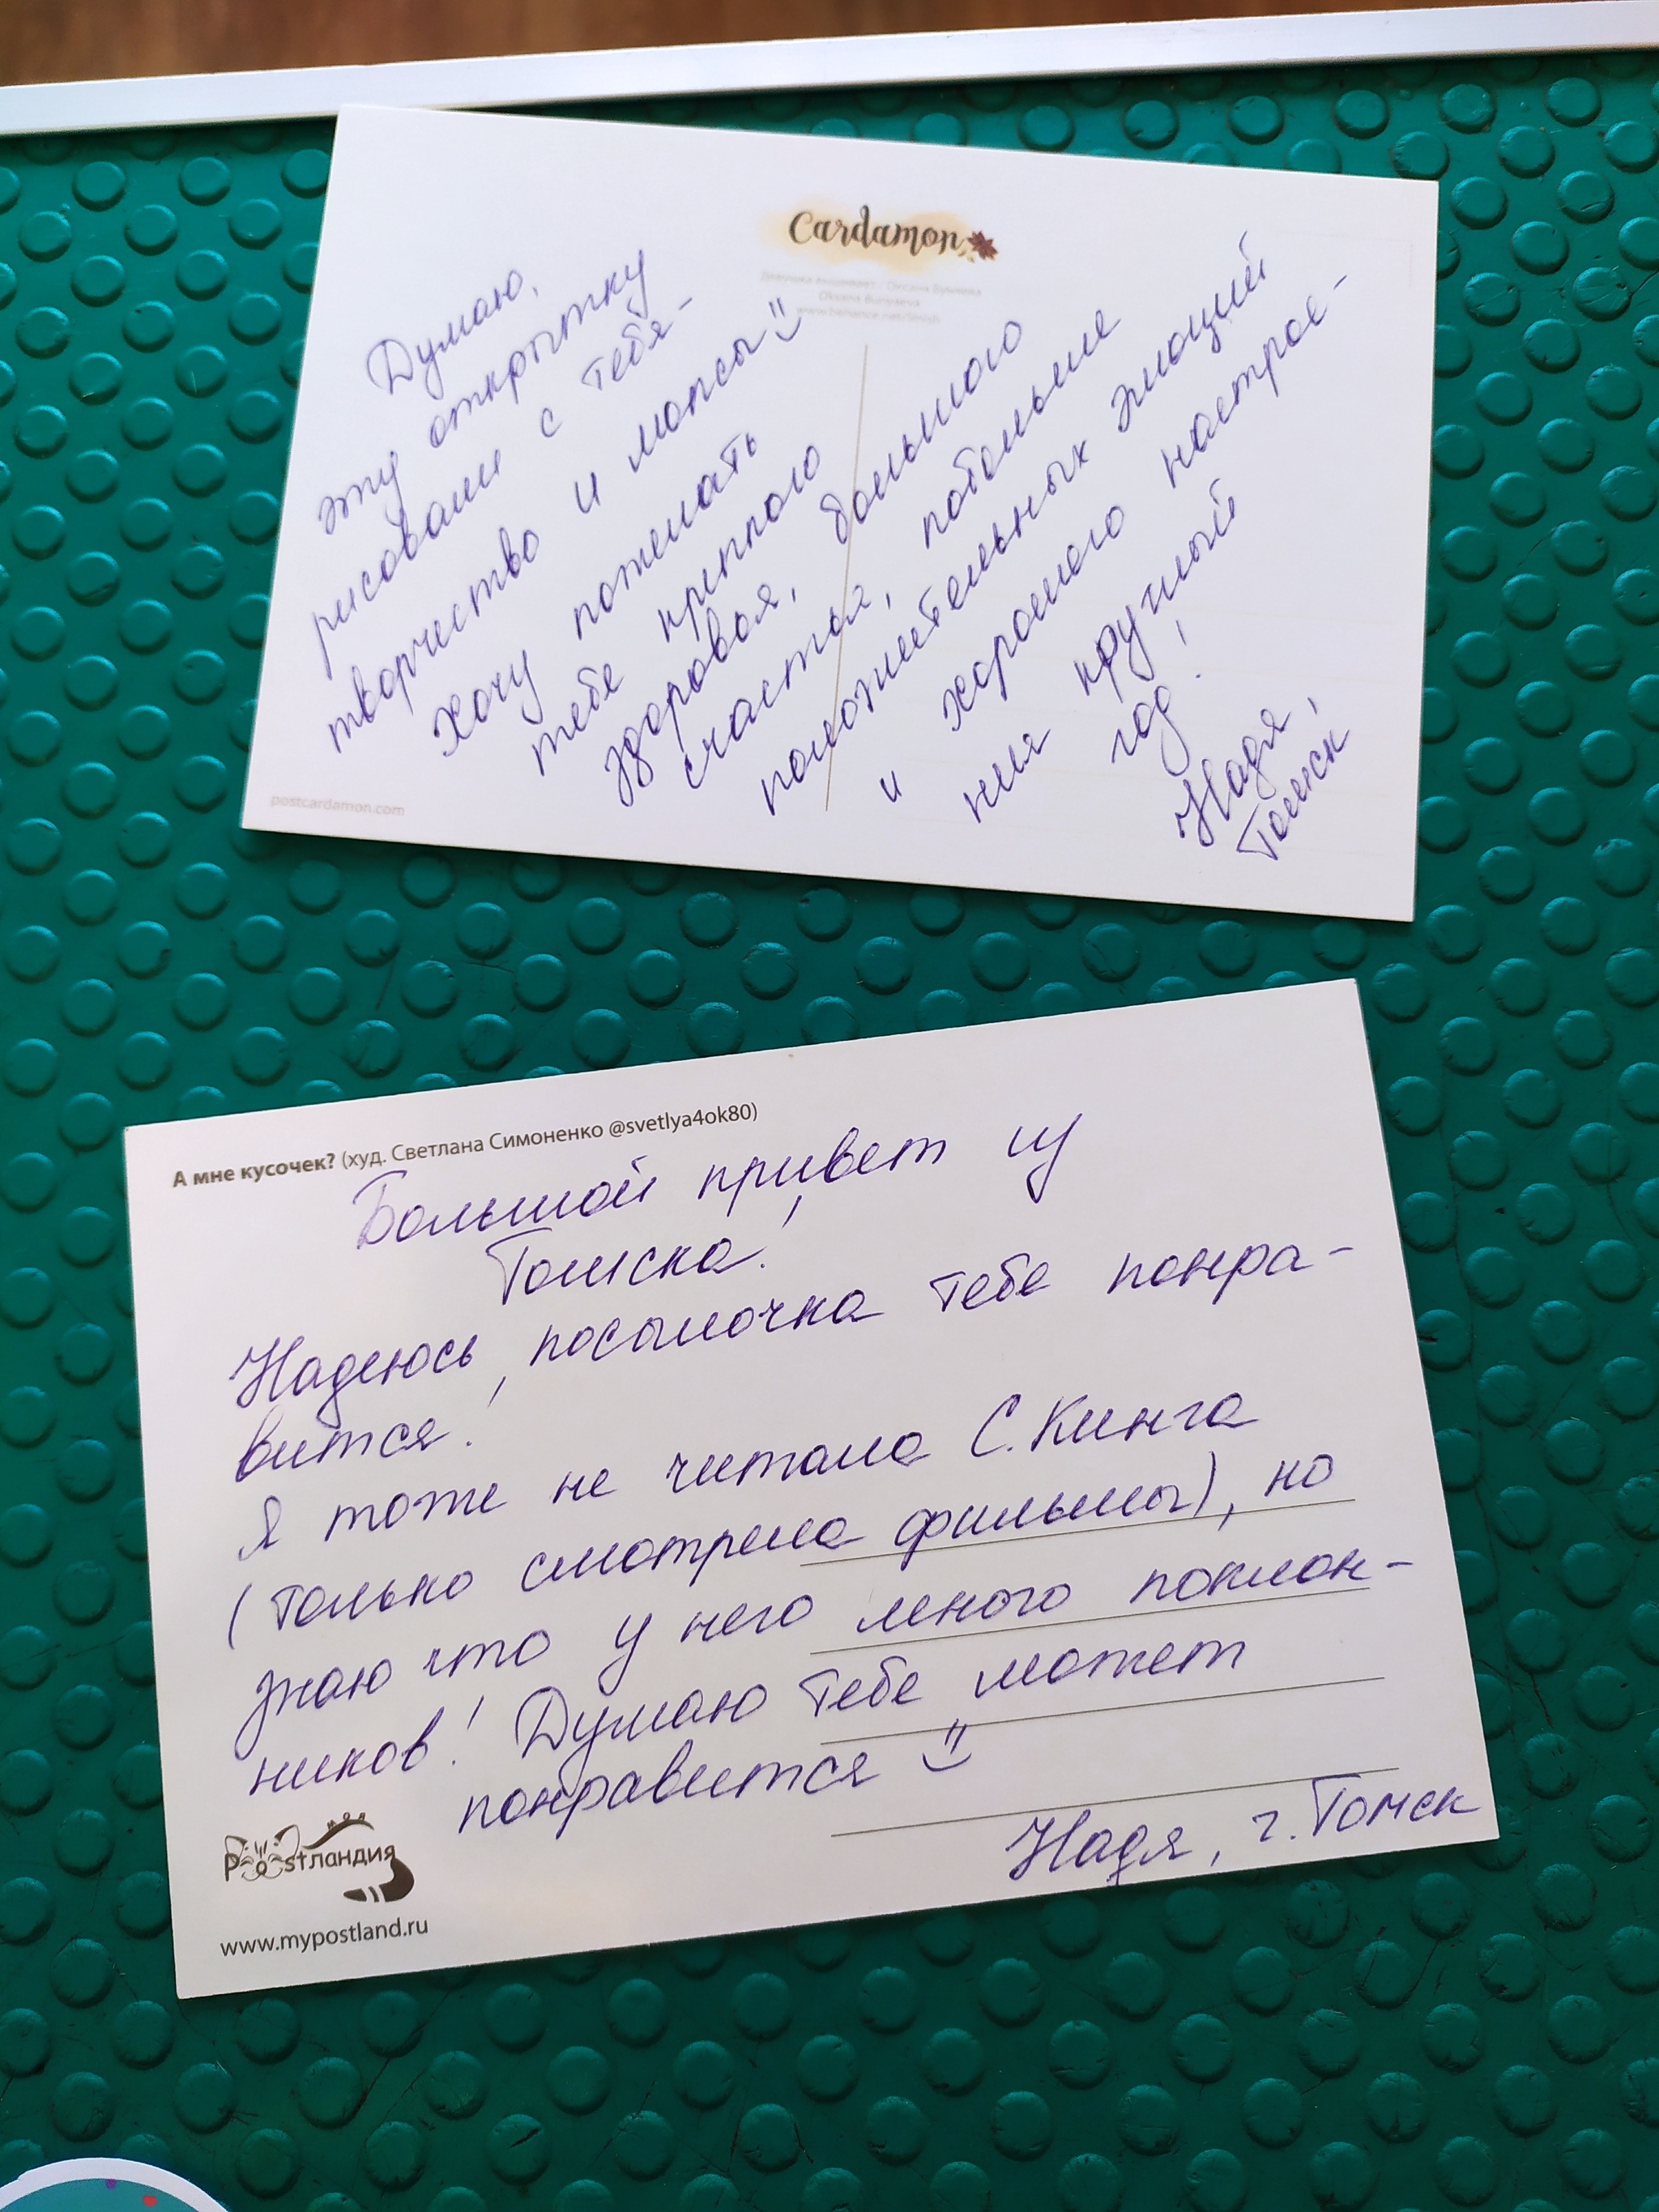 Cardamon
www.behance.net/
Думаю,
эту открытку
рисовали с тебя -
творчество и мопсы
Хочу пожелать
тебе крепкого
здоровья, большого
счастья, побольше
положительных эмоций
и хорошего настрое-
ния круглый
год!
Надя,
Томск
postcardamon.com
А мне кусочек? (худ. Светлана Симоненко @svetlya4ok80)
Большой привет из
Томска!
Надеюсь, посылочка тебе понра-
вится!
Я тоже не читала С. Кинга
(только смотрела фильмы), но
знаю что у него много поклон-
ников! Думаю тебе может
понравится
Надя, г. Томск
Postландия
www.mypostland.ru